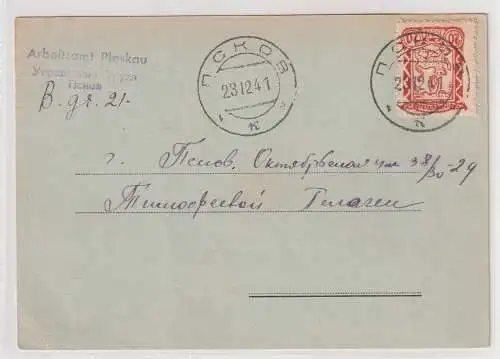 Arbeitsamt Pleskau
Управление Труда
Псков
В. gr. 21.
ПСКОВ
23 12 41
к
ПСКОВ
23 12 41
к
60
г. Псков. Октябрьская ул 38/30-29
Тимофеевой Пелагеи